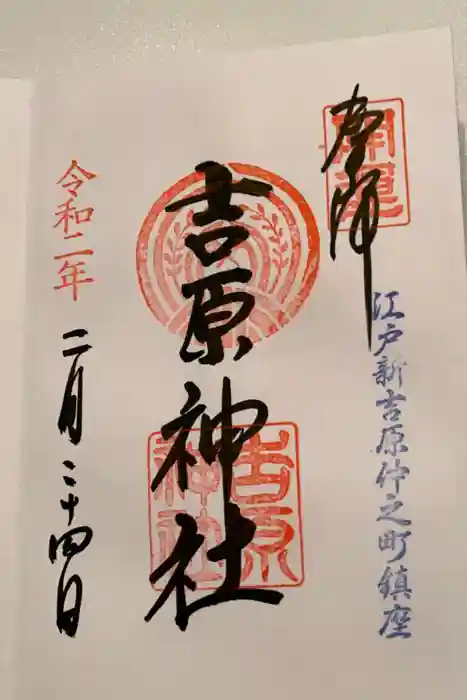 奉拝
開運
江戸新吉原仲之町鎮座
吉原神社
吉原神社
令和二年
二月二十四日